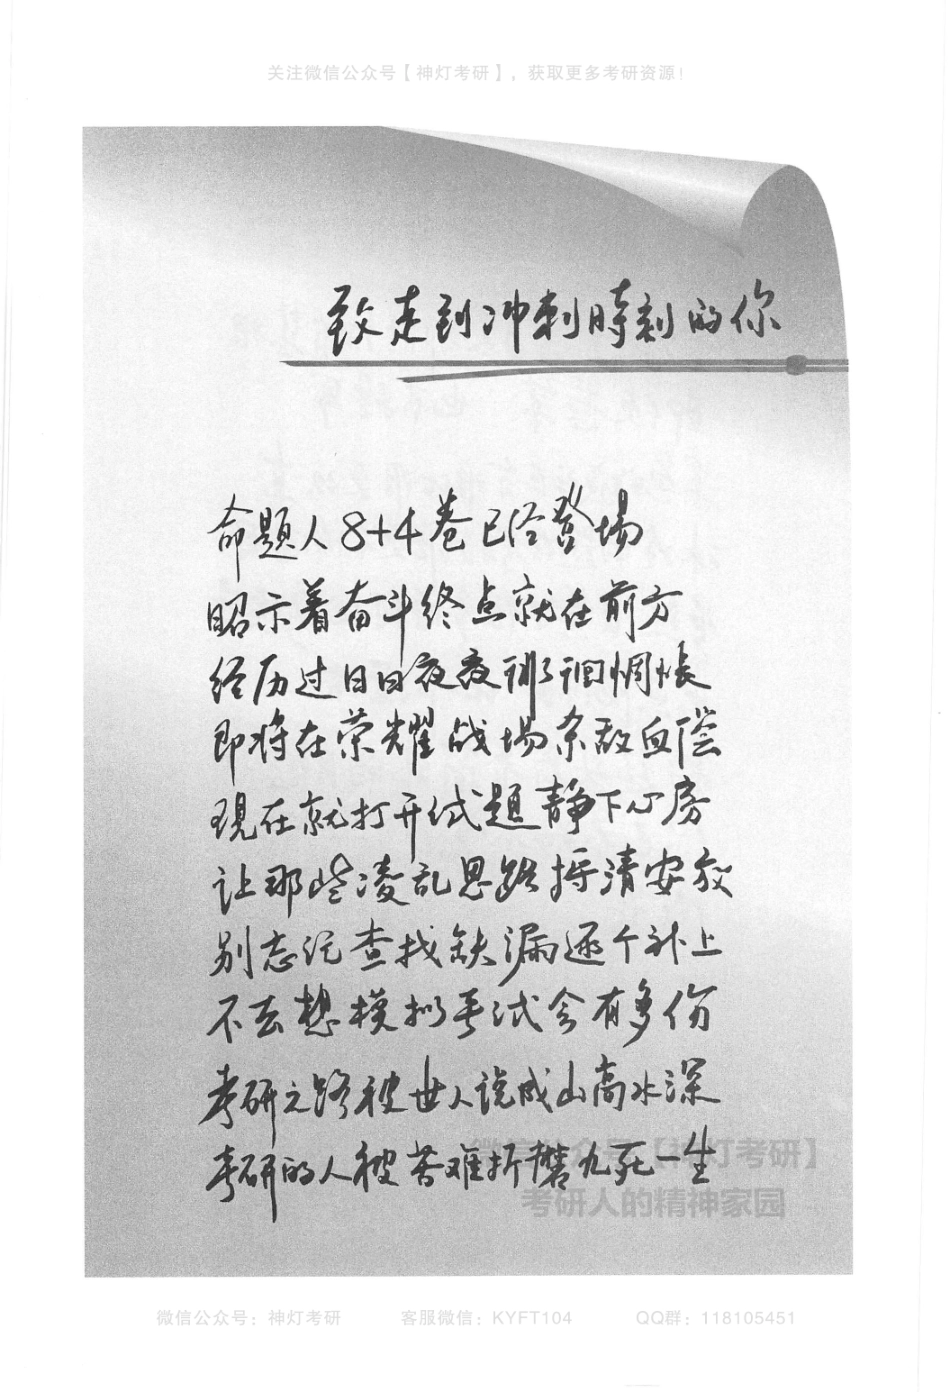 关注微信公众号【神灯考研】，获取更多考研资源！
致走到冲刺時刻的你
命题人8+4卷已经登场
昭示着奋斗终点就在前方
经历过日日夜夜彷徊惆怅
即将在荣耀战场杀敌血偿
現在就打开试題静下心房
让那些凌乱思路捋清安放
别忘记查找缺漏逐个补上
不去想模拟考试会有多伤
考研之路被世人说成山高水深
考研的人被苦难折磨九死一生
微信公众号【神灯考研】
考研人的精神家园
微信公众号：神灯考研 客服微信：KYFT104 QQ群：118105451